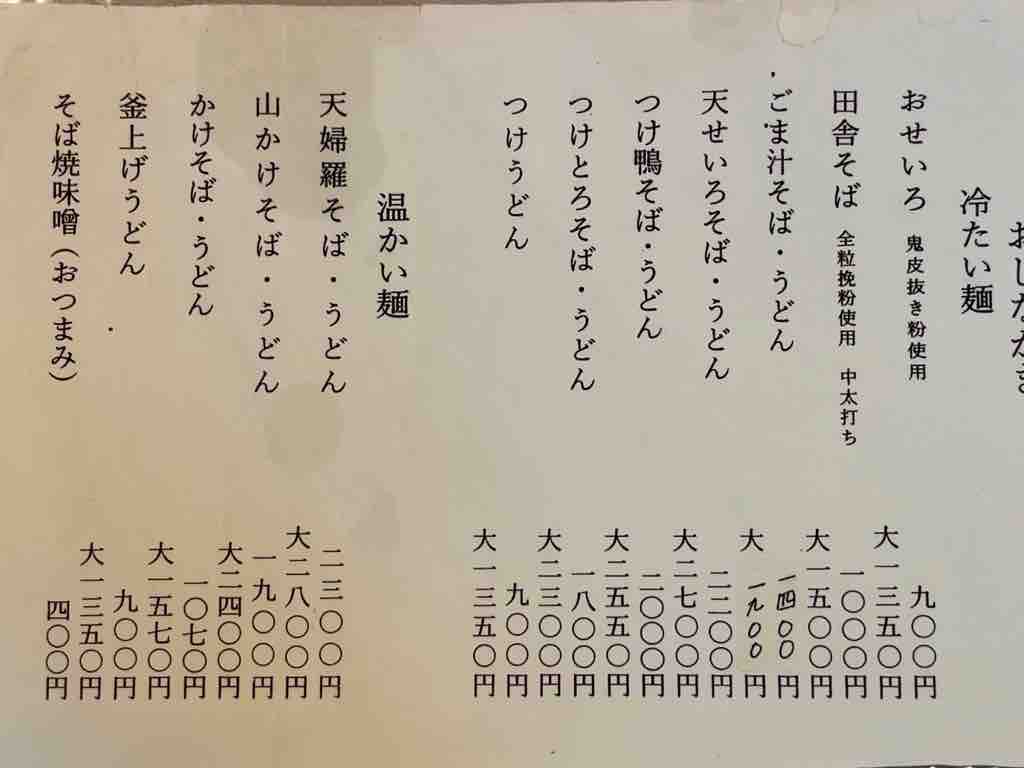 おしながき
冷たい麺
おせいろ 鬼皮抜き粉使用 九〇〇円
大一三五〇円
田舎そば 全粒挽粉使用 中太打ち 一〇〇〇円
大一五〇〇円
ごま汁そば・うどん 一四〇〇円
大一九〇〇円
天せいろそば・うどん 二二〇〇円
大二七〇〇円
つけ鴨そば・うどん 二〇〇〇円
大二五五〇円
つけとろそば・うどん 一八〇〇円
大二三〇〇円
つけうどん 九〇〇円
大一三五〇円
温かい麺
天婦羅そば・うどん 二三〇〇円
大二八〇〇円
山かけそば・うどん 一九〇〇円
大二四〇〇円
かけそば・うどん 一〇七〇円
大一五七〇円
釜上げうどん 九〇〇円
大一三五〇円
そば焼味噌(おつまみ) 四〇〇円